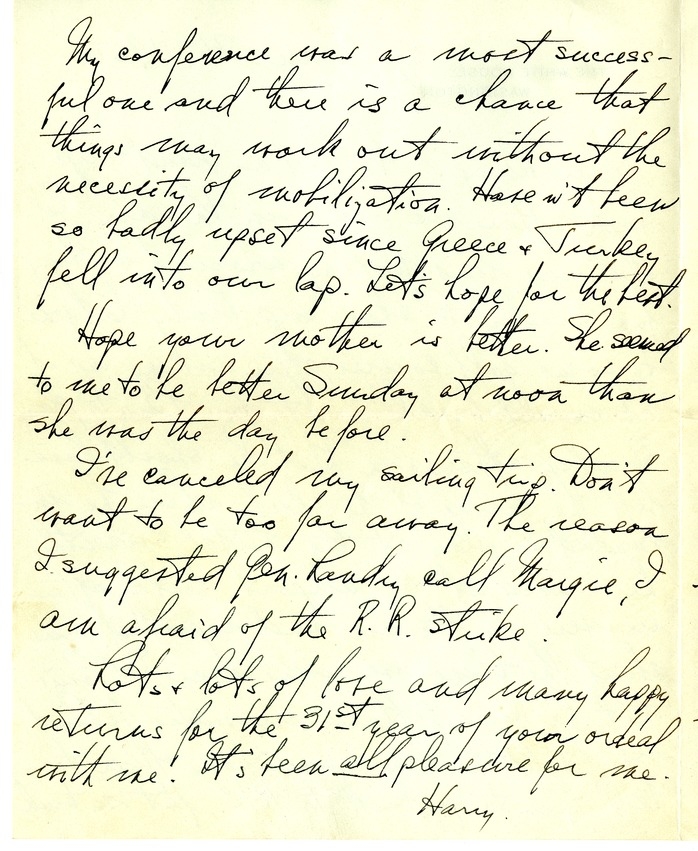 My conference was a most success-
ful one and there is a chance that
things may work out without the
necessity of mobilization. Haven't been
so badly upset since Greece & Turkey
fell into our lap. Let's hope for the best.
Hope your mother is better. She seemed
to me to be better Sunday at noon than
she was the day before.
I've canceled my sailing trip. Don't
want to be too far away. The reason
I suggested Gen. Landry call Margie, I
am afraid of the R.R. strike.
Lots & lots of love and many happy
returns for the 31st year of your ordeal
with me. It's been all pleasure for me.
Harry.